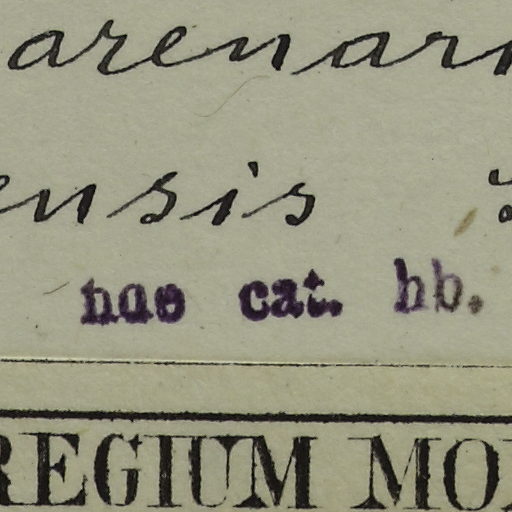 arenar
ensis
hae cat. hb.
REGIUM MO